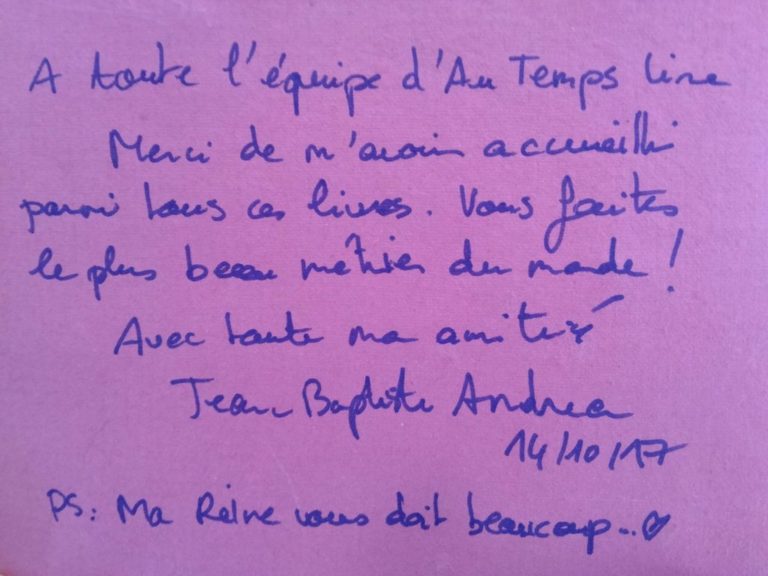 A toute l'équipe d'Au Temps Lire
Merci de m'avoir accueilli
parmi tous ces livres. Vous faites
le plus beau métier du monde !
Avec toute ma amitié
Jean-Baptiste Andrea
14/10/17
PS: Ma Reine vous doit beaucoup...♡